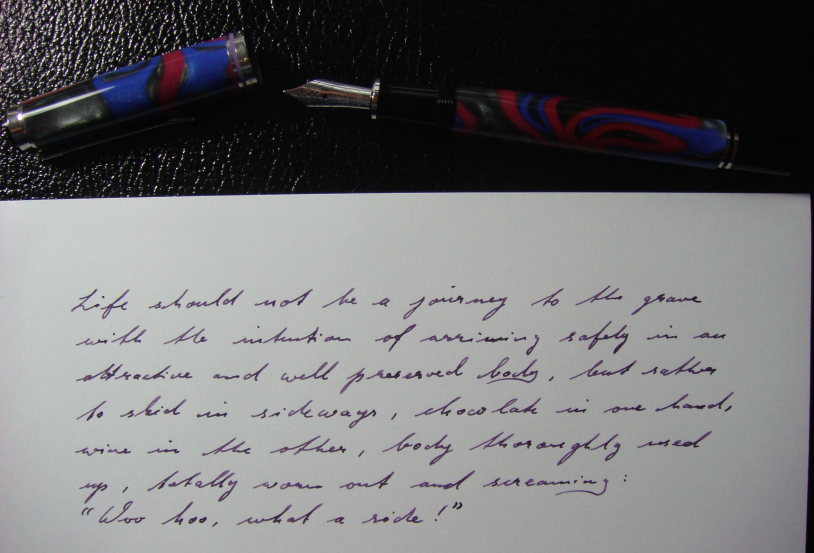 Life should not be a journey to the grave
with the intention of arriving safely in an
attractive and well preserved body, but rather
to skid in sideways, chocolate in one hand,
wine in the other, body thoroughly used
up, totally worn out and screaming:
"Woo hoo, what a ride!"